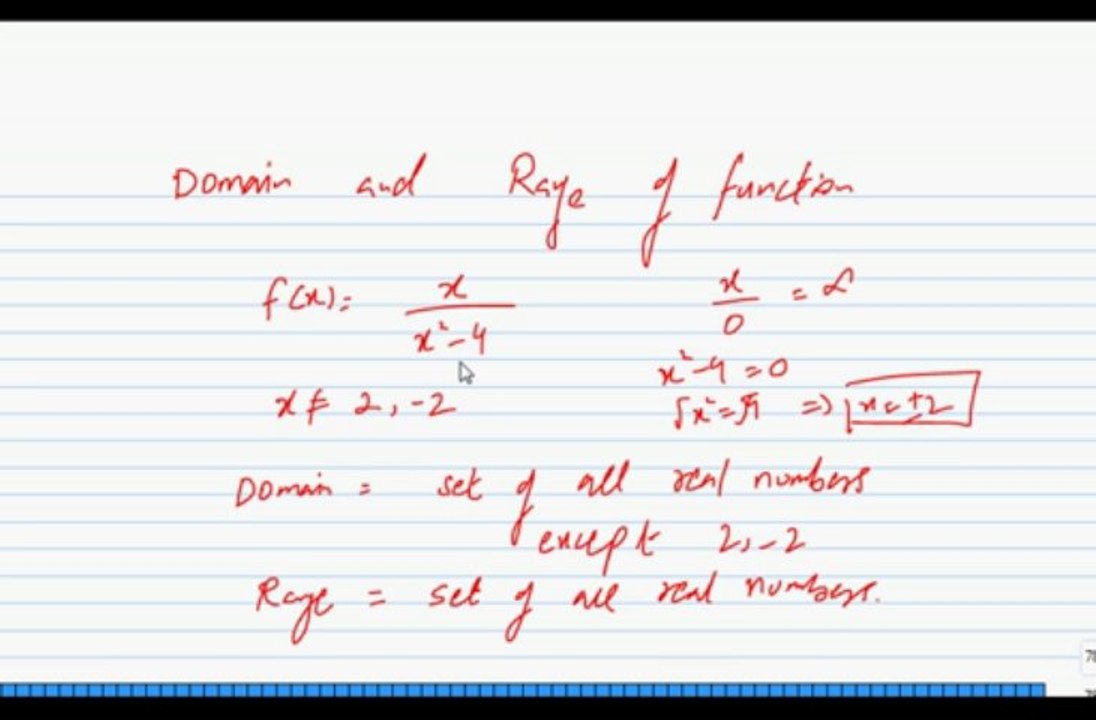 Domain and Range of function
f(x) = x / x² - 4
x / 0 = ∞
x² - 4 = 0
x ≠ 2, -2
√x² = √4 => x = ±2
Domain = set of all real numbers
except 2, -2
Range = set of all real numbers.
78